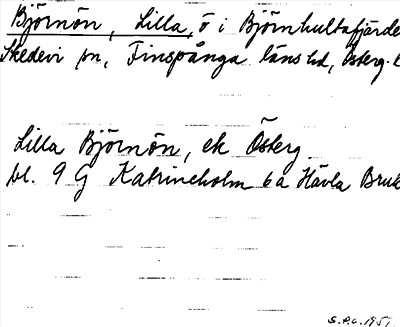 Björnön, Lilla, ö i Björnhultafjärde
Skedevi sn, Finspånga läns hd, Österg.
Lilla Björnön, ek Österg
bl. 9 G Katrineholm 6a Hävla Bruk
S.P.C. 1951